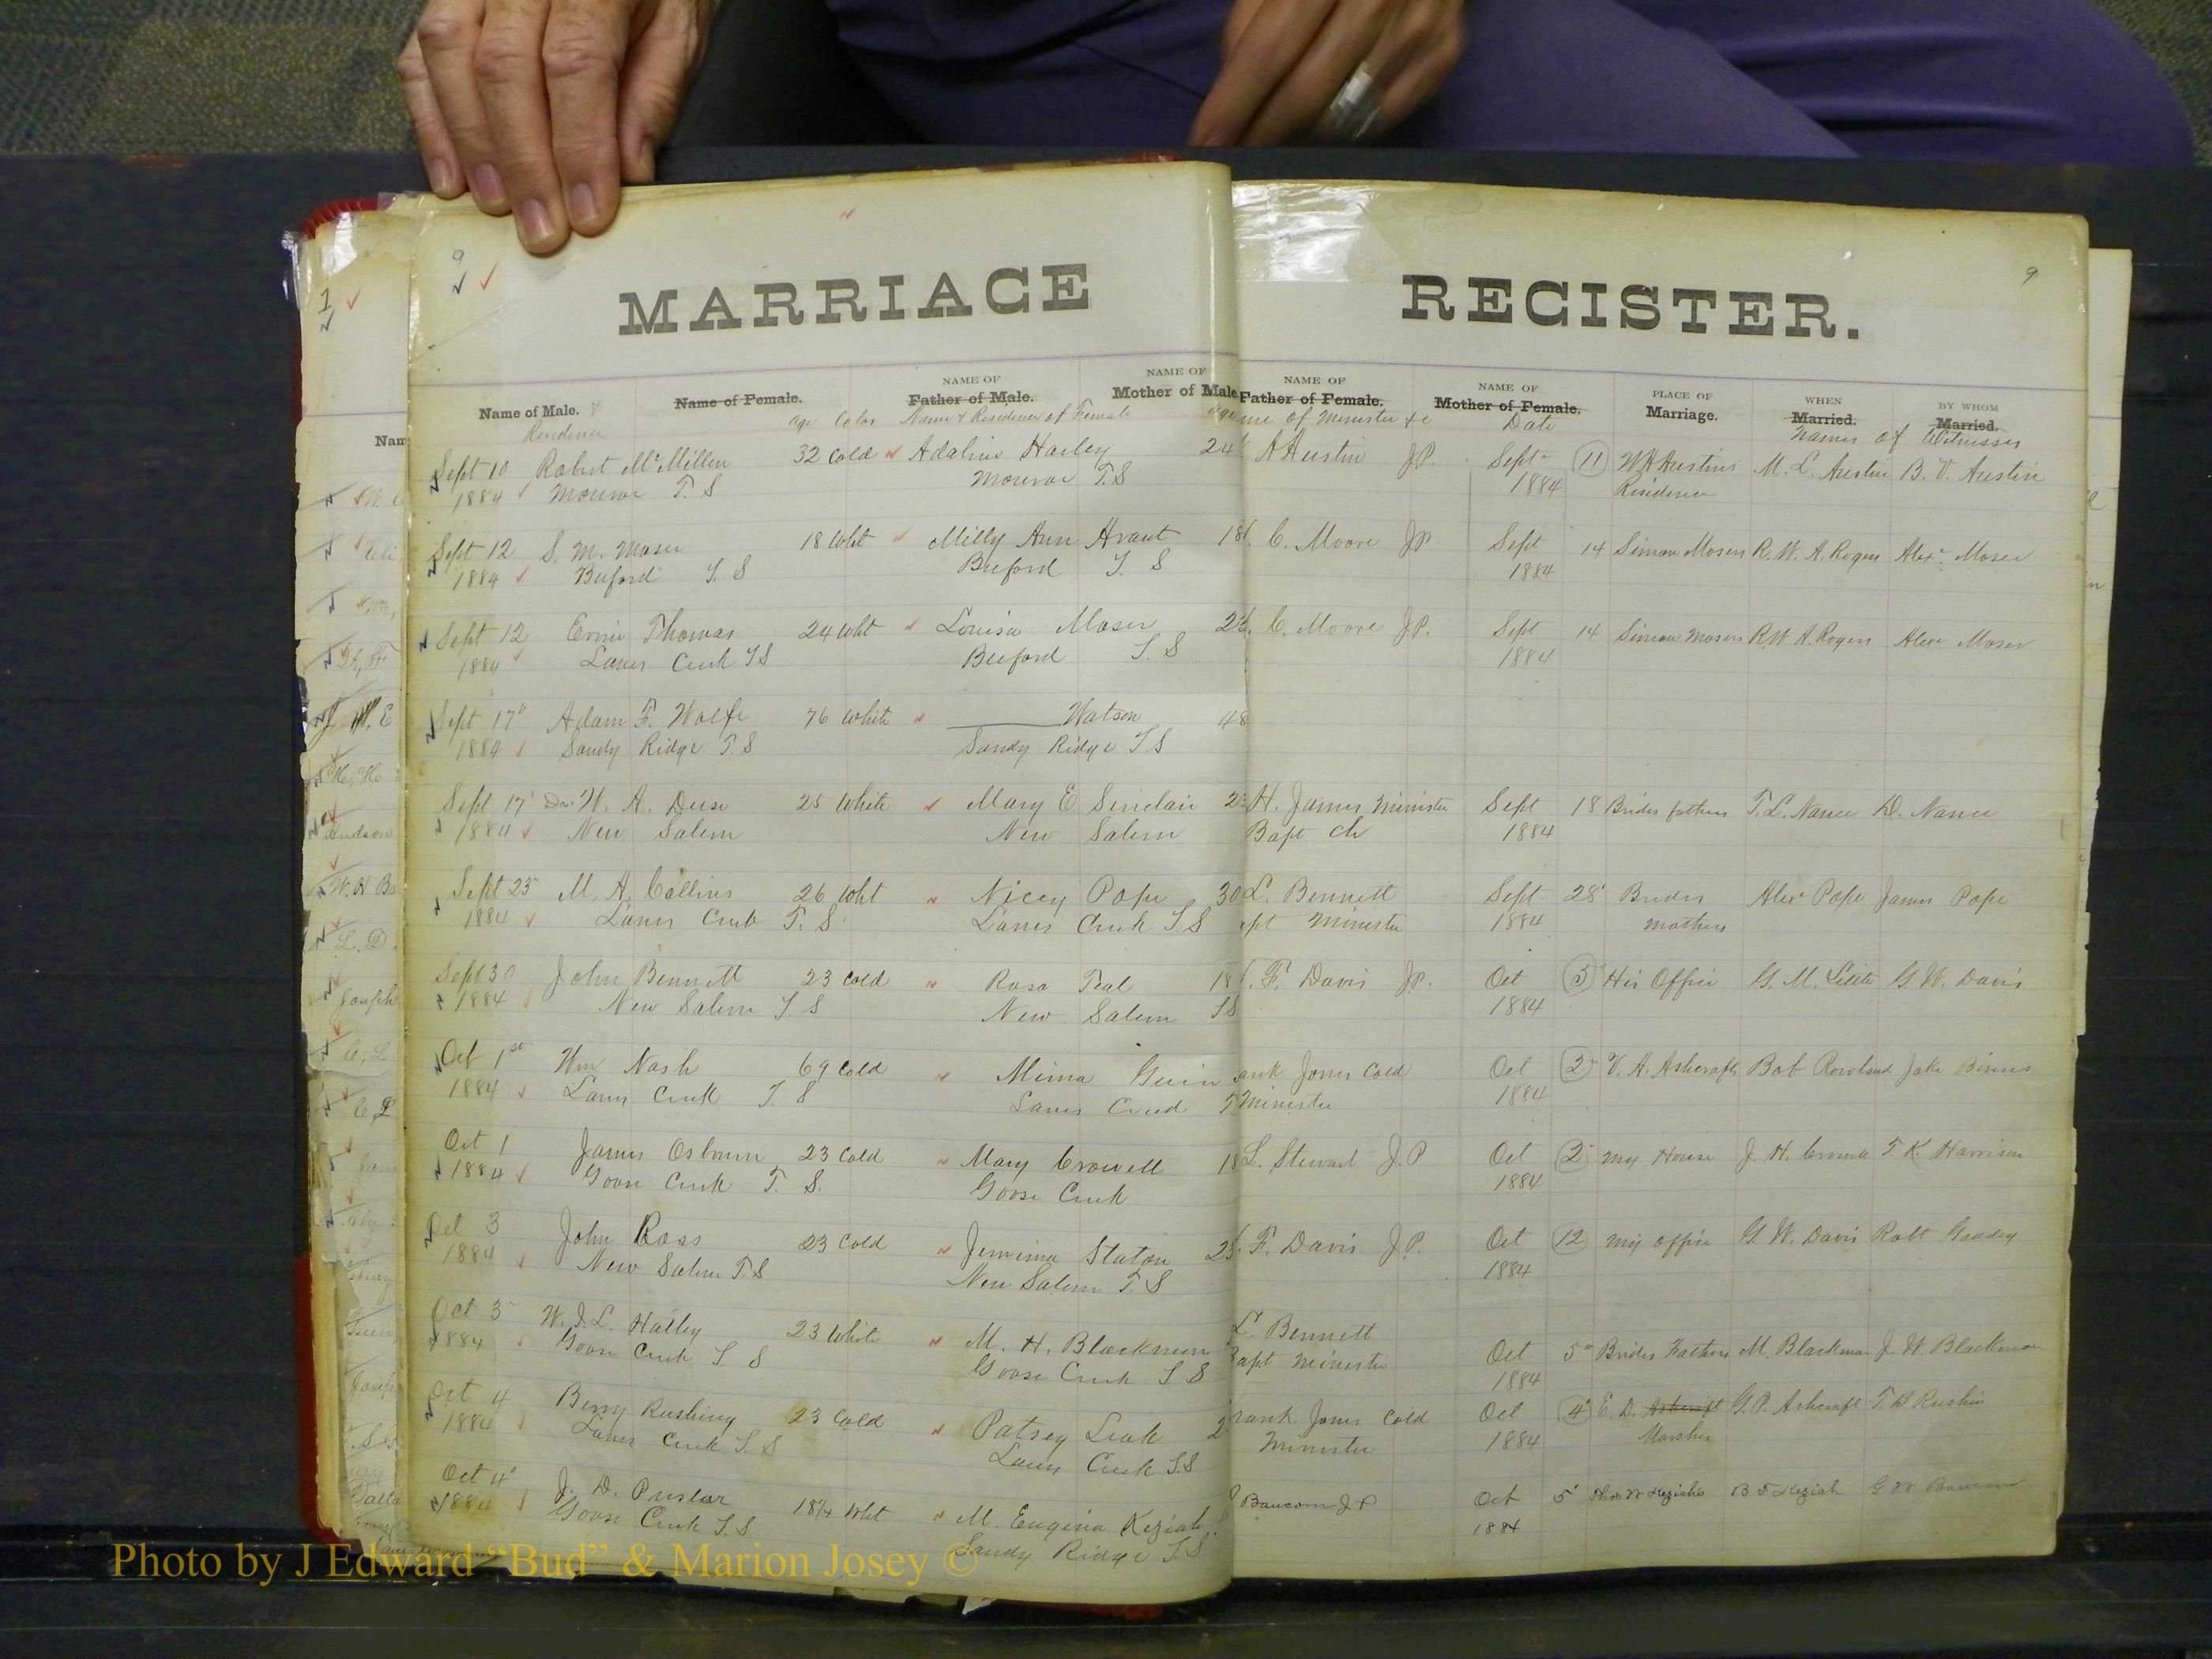 9
9
1
MARRIAGE REGISTER.
Name of Male. Name of Female. NAME OF Father of Male. NAME OF Mother of Male NAME OF Father of Female. NAME OF Mother of Female. PLACE OF Marriage. WHEN Married. BY WHOM Married.
Residence age Color Name & Residence of Female age me of Minister &c Date Names of Witnesses
Sept 10 Robert McMillen 32 Cold Adaline Hailey 24 A Austin J.P. Sept 11 W A Austins M. L. Austin B. V. Austin
1884 Monroe T. S Monroe T. S 1884 Residence
Sept 12 S. M. Moser 18 Wht Milly Ann Arant 18 C. Moore JP Sept 14 Simon Mosers R. W. A. Rogers Alexr Moser
1884 Buford T. S Buford T. S 1884
Sept 12 Thomas 24 Wht Louisa Moser 2 C. Moore J.P. Sept 14 Simon Mosers R W A. Rogers Alexr Moser
1884 Lanes Creek T S Buford T. S 1884
Sept 17 Adam F. Wolfe 76 White Watson 48
1884 Sandy Ridge T. S Sandy Ridge T S
Sept 17 W. A. 25 White Mary E. Sinclair 2 H. James Minister Sept 18 Brides fathers T. L. Nance D. Nance
1884 New Salem New Salem Bapt Ch 1884
Sept 25 M. A. Collins 26 Wht Nicey Pope 30 L. Bennett Sept 28 Brides Alexr Pope James Pope
1884 Lanes Creek T. S. Lanes Creek T S apt Minister 1884 mothers
Sept 30 John Bennett 23 Cold Rosa Teal 18 F. Davis JP. Oct 5 His Office G. M. G. W. Davis
1884 New Salem T. S New Salem TS 1884
Oct 1st Wm Nash 69 Cold Mima Guin ank Jones Cold Oct 2 V. A. Ashcrafts Bob Rowland Jake Bivins
1884 Lanes Creek T. S. Lanes Creek T Minister 1884
Oct 1 James Osburn 23 Cold Mary Crowell 18 L. Stewart J. P Oct 2 my House J. H. T. K. Harrison
1884 Goose Creek T. S. Goose Creek 1884
Oct 3 John Ross 23 Cold Jemima Staton 2 F. Davis J. P. Oct 12 my office G. W. Davis Robt Gaddy
1884 New Salem T. S New Salem T. S 1884
Oct 3 W. J. L. Hailey 23 White M. H. Blackmun L. Bennett Oct 5 Brides Fathers M. Blackman J. W. Blackmon
1884 Goose Creek T S Goose Creek T S apt Minister 1884
Oct 4 Berry Rushing 23 Cold Patsey Leak 2 rank Jones Cold Oct 4 E. D. Ashcraft G. P. Ashcraft T. B Rushin
1884 Lanes Creek T. S Lanes Creek T. S Minister 1884
Oct 4 J. D. Preslar 18 1/4 Wht M. Eugenia Keziah Baucom J P Oct 5 W Keziahs B F Keziah G W Baucom
1884 Goose Creek T. S Sandy Ridge T. S 1884
Photo by J Edward "Bud" & Marion Josey ©